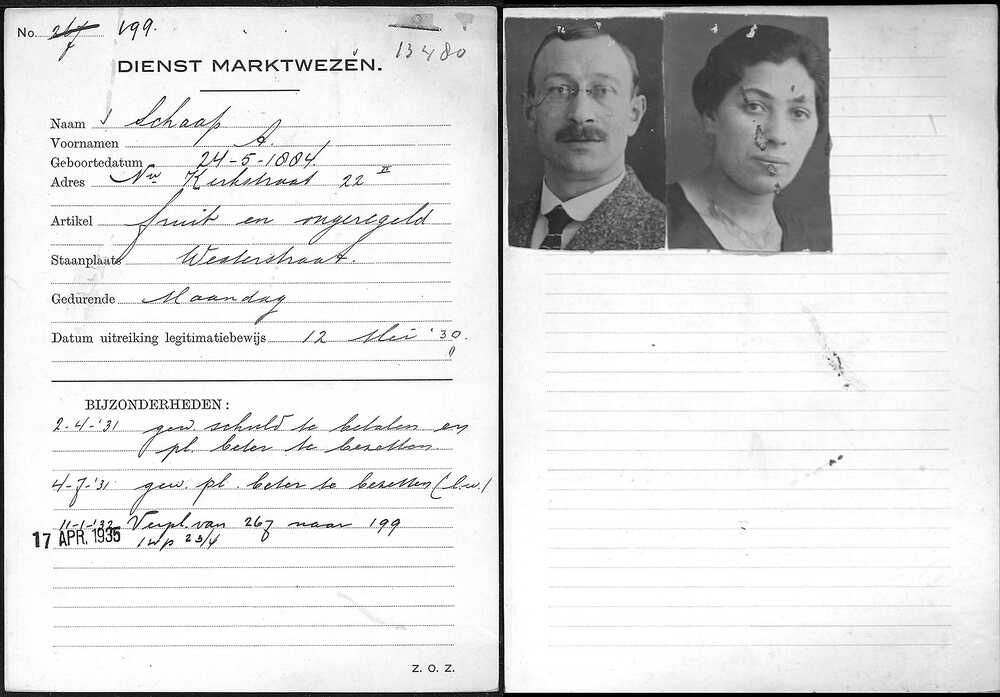 No. 267 199.
13480
DIENST MARKTWEZEN.
Naam Schaap
Voornamen A.
Geboortedatum 24-5-1884
Adres Nw Kerkstraat 22 II
Artikel fruit en ongeregeld
Staanplaats Westerstraat.
Gedurende Maandag
Datum uitreiking legitimatiebewijs 12 Mei '30.
BIJZONDERHEDEN:
2-4-'31 gew. schuld te betalen en
pl. beter te bezetten.
4-7-'31 gew. pl. beter te bezetten (l.w.)
11-1-'32 Verpl. van 267 naar 199
17 APR. 1935
1wp 23/4
Z. O. Z.